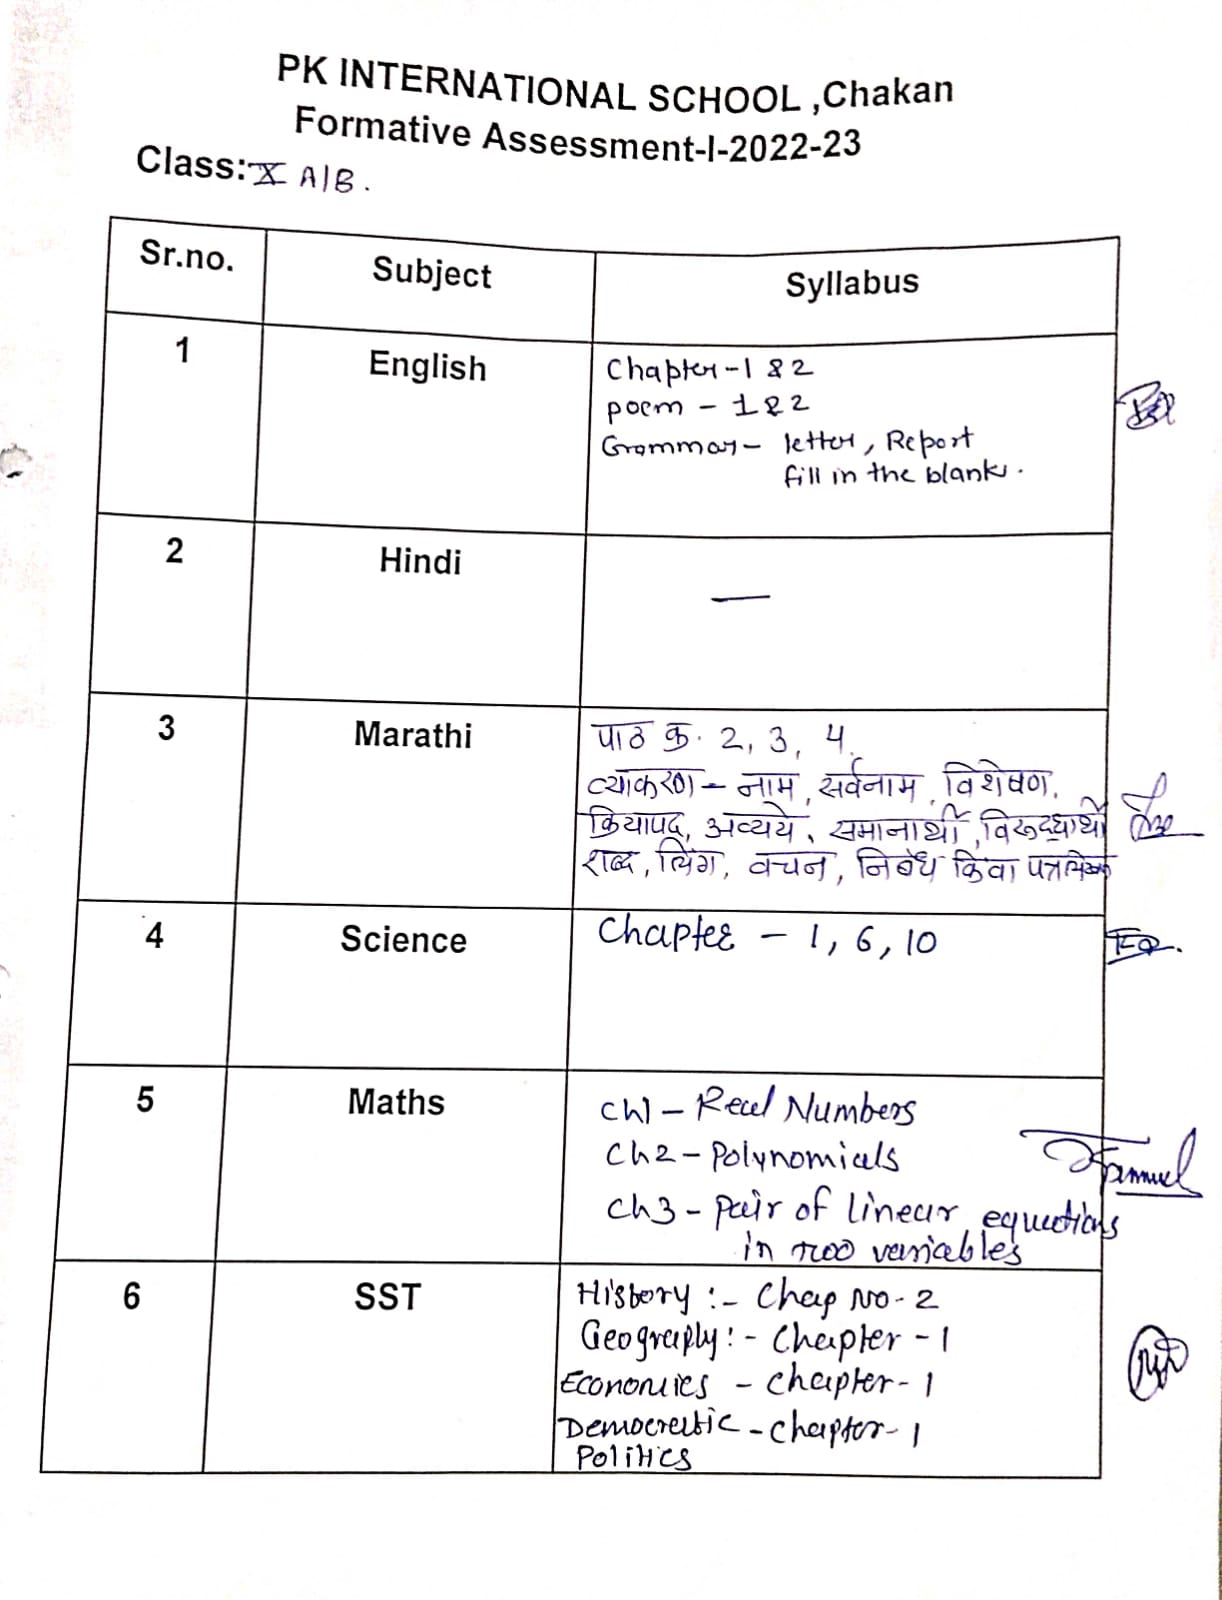 PK INTERNATIONAL SCHOOL ,Chakan
Formative Assessment-I-2022-23
Class: X A/B.
Sr.no. Subject Syllabus
1 English Chapter-1 & 2
poem - 1 & 2
Grammar - letter, Report
fill in the blanks.
2 Hindi —
3 Marathi पाठ क्र. 2, 3, 4.
व्याकरण - नाम, सर्वनाम, विशेषण,
क्रियापद, अव्यये, समानार्थी, विरूद्धार्थी
शब्द, लिंग, वचन, निबंध किंवा
4 Science Chapter - 1, 6, 10
5 Maths Ch1 - Real Numbers
Ch2 - Polynomials
Ch3 - Pair of linear equations
in two variables
6 SST History :- Chap No- 2
Geography :- Chapter - 1
Economics - Chapter - 1
Democratic - Chapter - 1
Politics